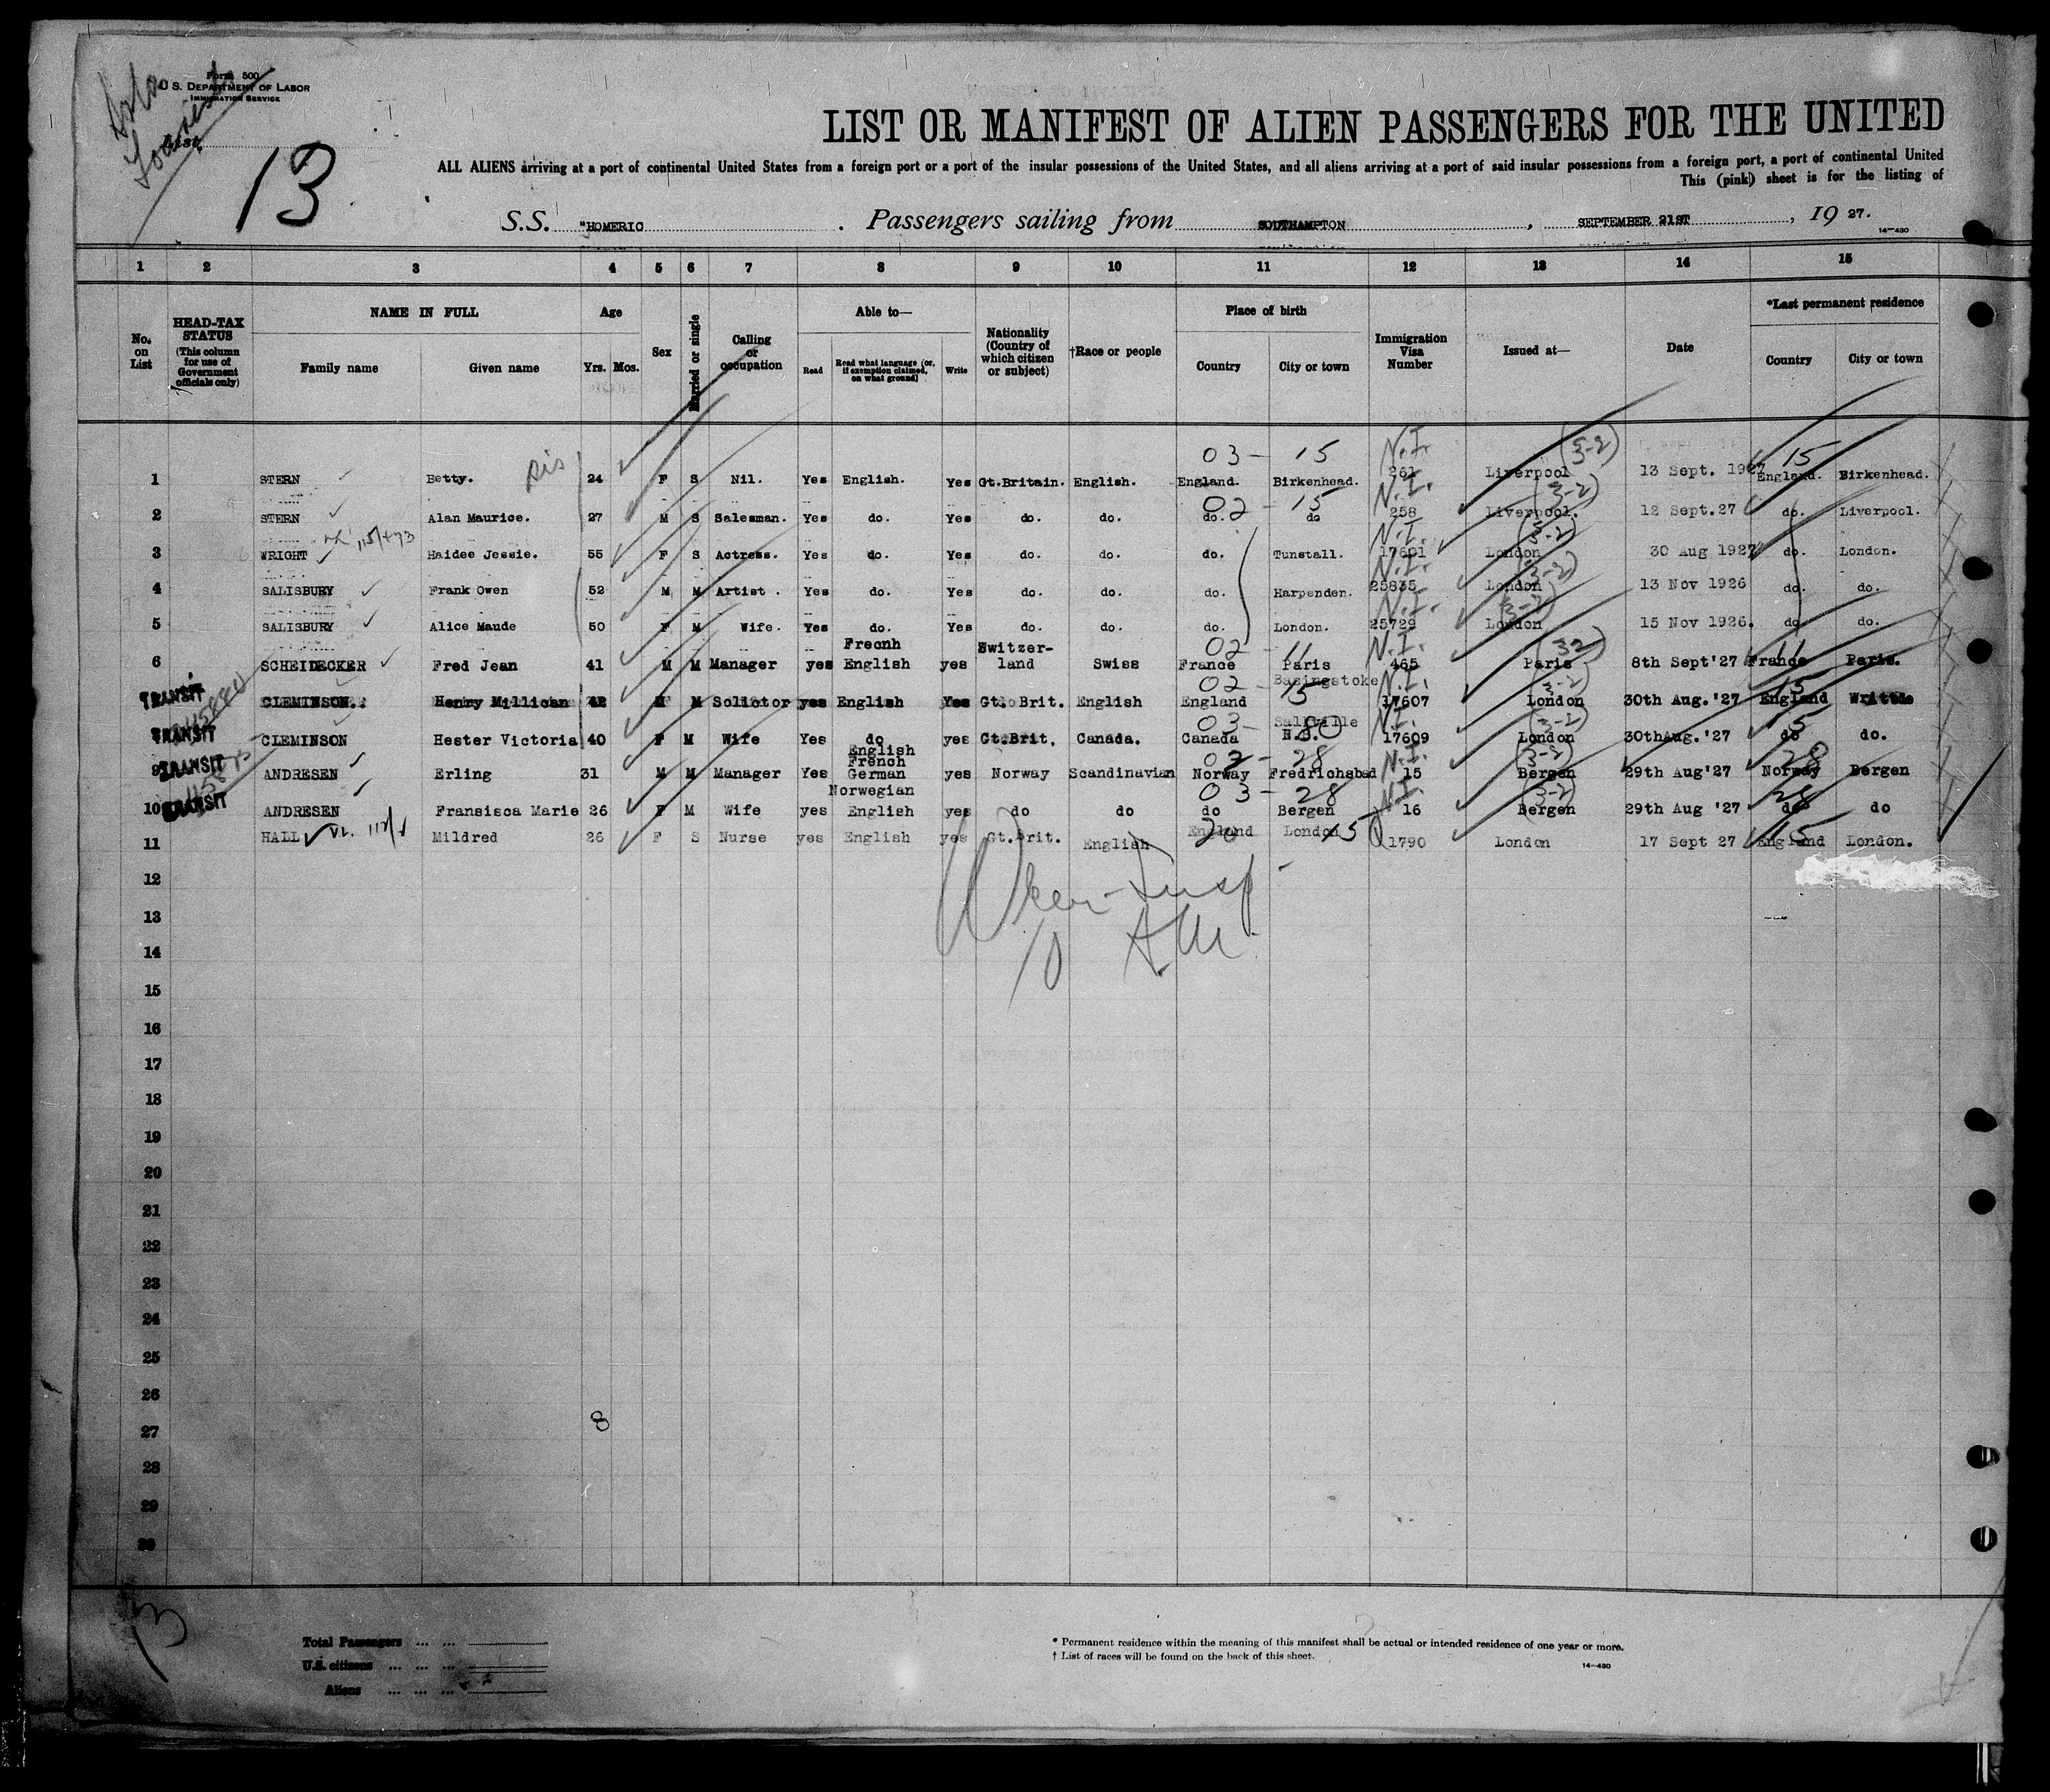 Form 500
U S. DEPARTMENT OF LABOR
IMMIGRATION SERVICE
List
13
LIST OR MANIFEST OF ALIEN PASSENGERS FOR THE UNITED
ALL ALIENS arriving at a port of continental United States from a foreign port or a port of the insular possessions of the United States, and all aliens arriving at a port of said insular possessions from a foreign port, a port of continental United
This (pink) sheet is for the listing of
S.S. "HOMERIC . Passengers sailing from SOUTHAMPTON , SEPTEMBER 21ST , 19 27.
14—430
1 2 3 4 5 6 7 8 9 10 11 12 13 14 15
No. on List
HEAD-TAX STATUS (This column for use of Government officials only)
NAME IN FULL
Family name Given name
Age
Yrs. Mos.
Sex
Married or single
Calling or occupation
Able to—
Read Read what language (or, if exemption claimed, on what ground) Write
Nationality (Country of which citizen or subject)
†Race or people
Place of birth
Country City or town
Immigration Visa Number
Issued at—
Date
*Last permanent residence
Country City or town
03 - 15 N.I. (3-2) 15
1 STERN Betty. 24 F S Nil. Yes English. Yes Gt.Britain. English. England. Birkenhead. 261 Liverpool 13 Sept. 1927 England. Birkenhead.
02 - 15 N.I. (3-2)
2 STERN Alan Maurice. 27 M S Salesman. Yes do. Yes do. do. do. do 258 Liverpool. 12 Sept.27 do. Liverpool.
N.I. (3-2)
3 WRIGHT Haidee Jessie. 55 F S Actress. Yes do. Yes do. do. do. Tunstall. 17601 London 30 Aug 1927 do. London.
N.I. (3-2)
4 SALISBURY Frank Owen 52 M M Artist . Yes do. Yes do. do. do. Harpenden. 25835 London 13 Nov 1926 do. do.
N.I. (3-2)
5 SALISBURY Alice Maude 50 F M Wife. Yes do. Yes do. do. do. London. 25729 London 15 Nov 1926. do. do.
02 - 11 N.I. (32) 11
6 SCHEIDECKER Fred Jean 41 M M Manager yes Frecnh English yes Switzer- land Swiss France Paris 465 Paris 8th Sept'27 France Paris.
02 - 15 N.I. (3-2) 15
TRANSIT CLEMINSON. Henry Millican 42 M M Solictor yes English Yes Gt. Brit. English England Basingstoke 17607 London 30th Aug.'27 England Writtle
03- N.I. (3-2) 15
TRANSIT CLEMINSON Hester Victoria 40 F M Wife Yes do yes Gt.Brit. Canada. Canada 17609 London 30thAug.'27 do do.
02 - 28 N.I. (3-2) 28
9 TRANSIT ANDRESEN Erling 31 M M Manager Yes English French German Norwegian yes Norway Scandinavian Norway Fredrichsbad 15 Bergen 29th Aug'27 Norway Bergen
03 - 28 N.I. (3-2) 28
10 TRANSIT ANDRESEN Fransisca Marie 26 F M Wife yes English yes do do do Bergen 16 Bergen 29th Aug '27 do do
11 HALL Mildred 26 F S Nurse yes English yes Gt.Brit. English England London 15 1790 London 17 Sept 27 15 England London.
12
13
14
15
16
17
18
19
20
21
22
23
24
25
26
27 8
28
29
30
13
Total Passengers ... ...
U.S. citizens ... ... ...
Aliens ... ... ...
* Permanent residence within the meaning of this manifest shall be actual or intended residence of one year or more.
† List of races will be found on the back of this sheet.
14—430